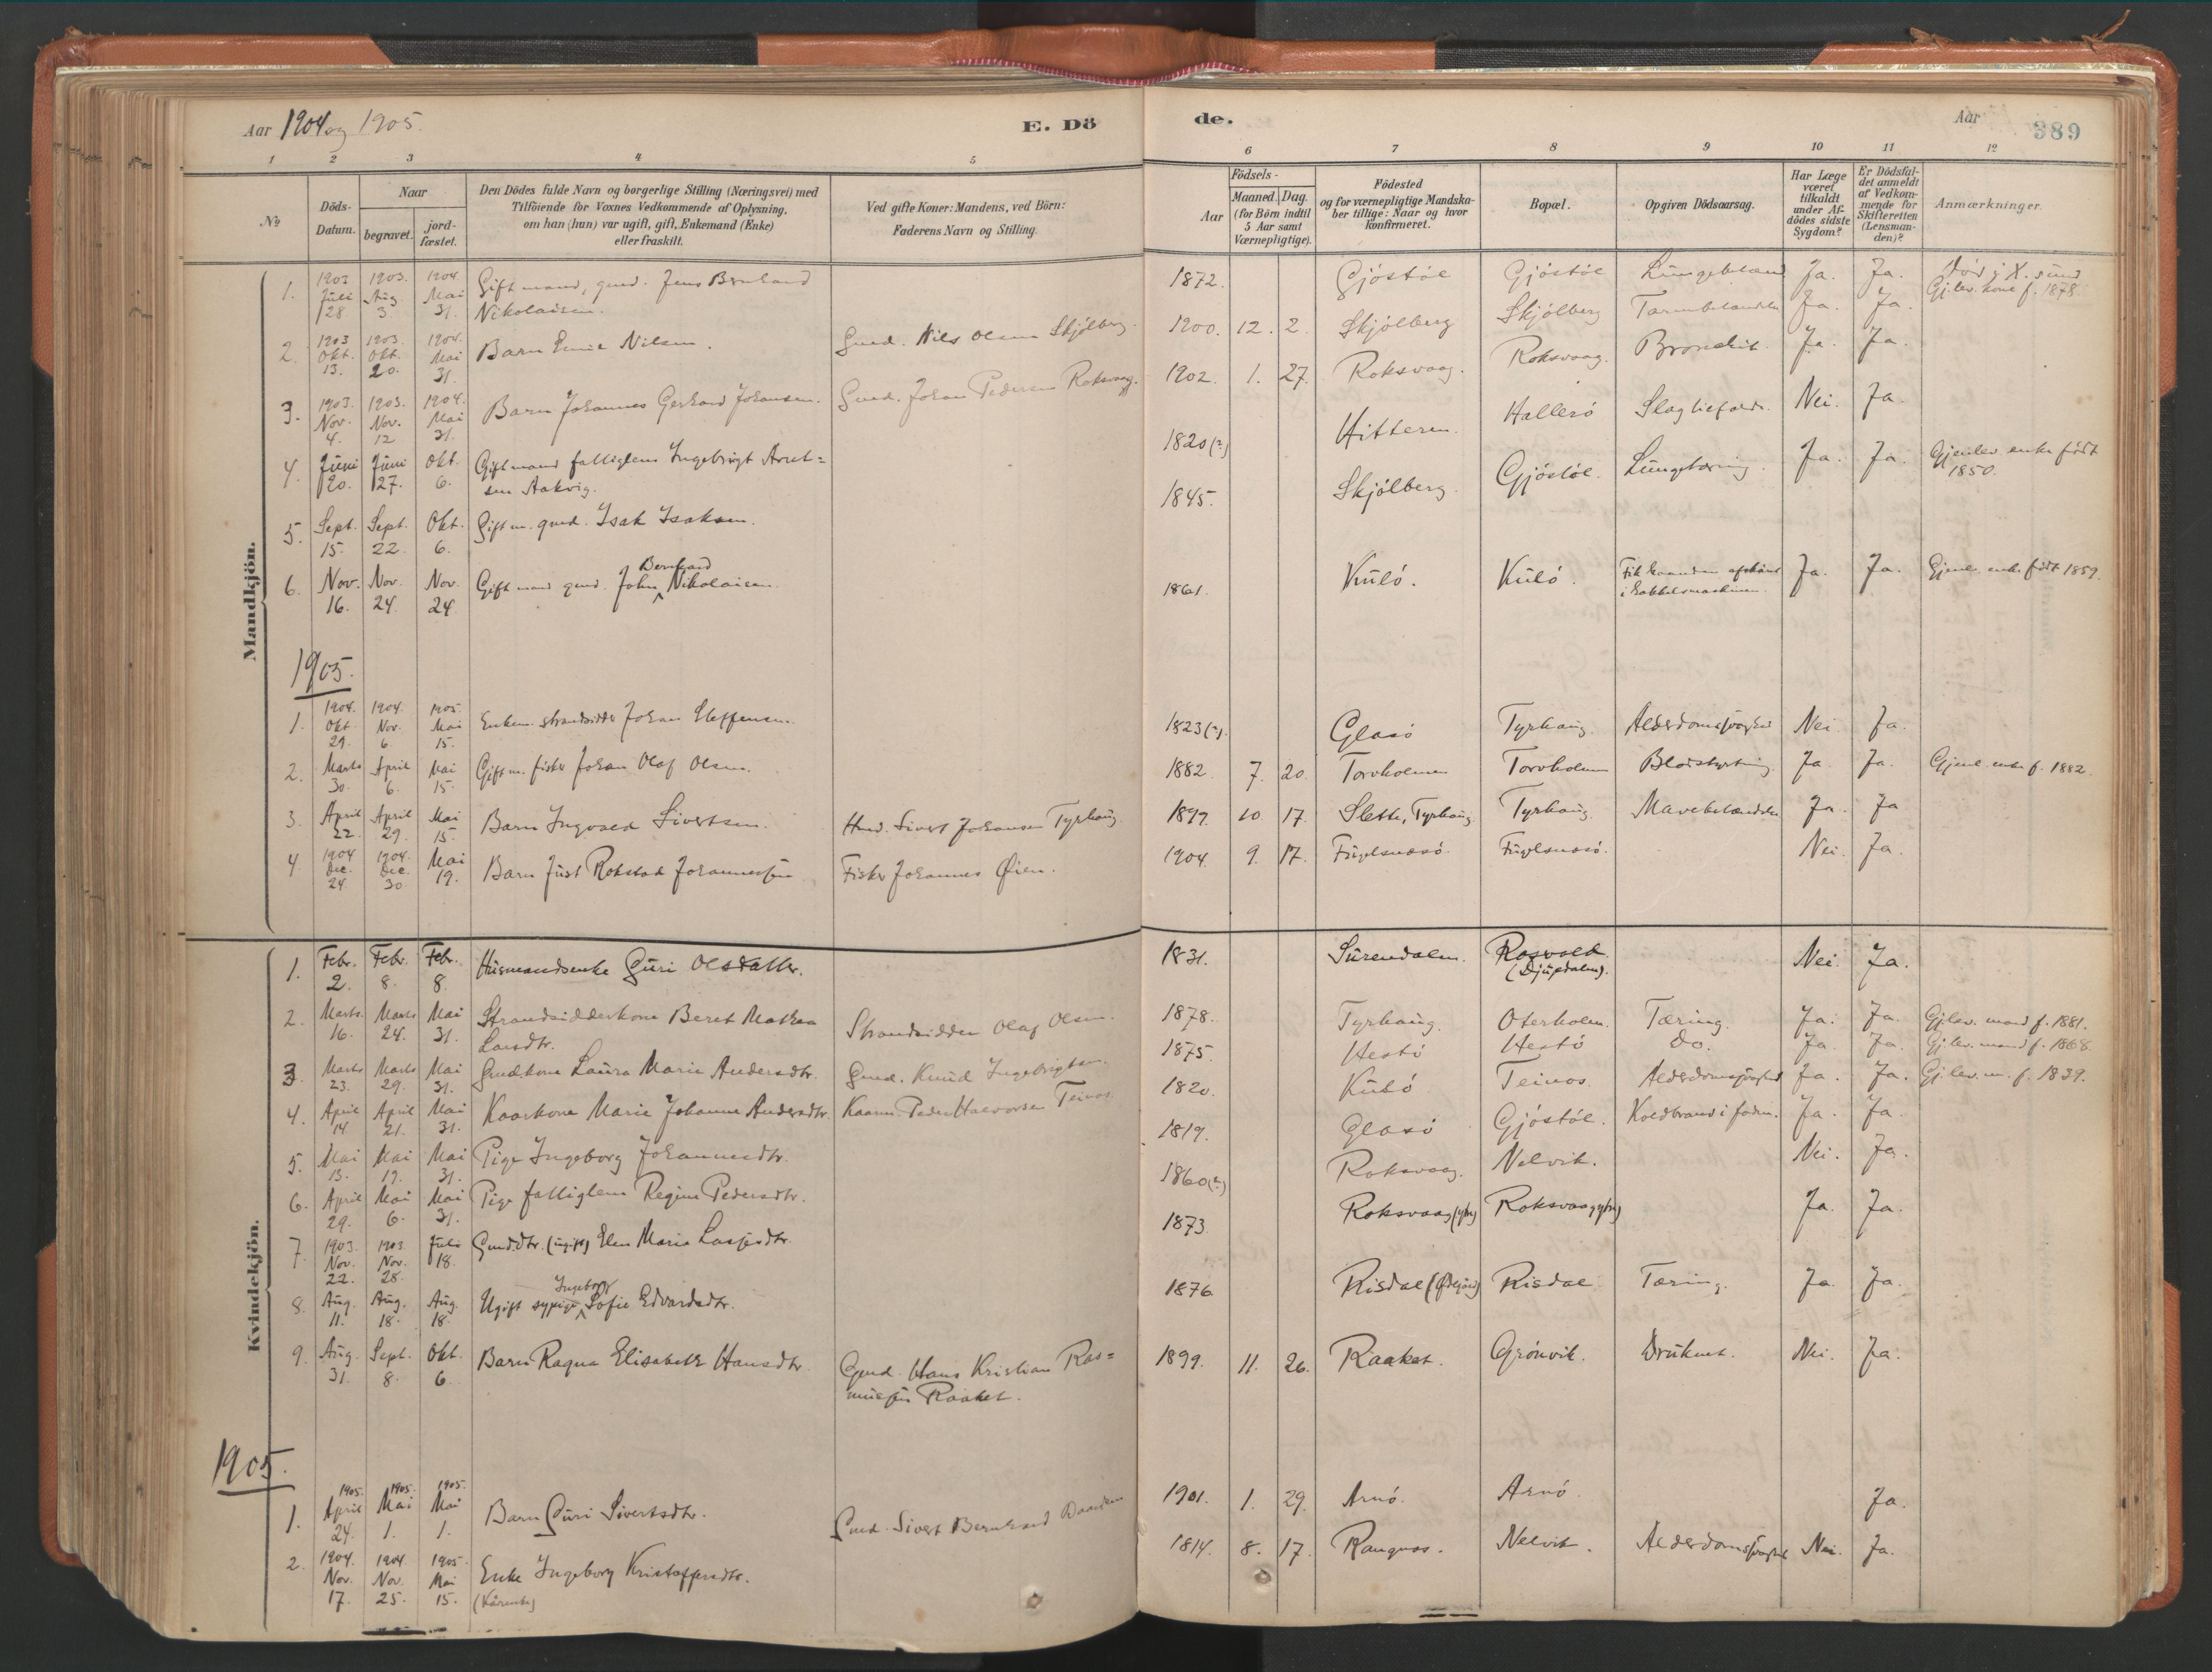 Aar 1904 og 1905.
E. Dö
de.
Aar
389
1 2 3 4 5
6 7 8 9 10 11 12
No
Naar
Döds-Datum.
begravet.
jord-fæstet.
Den Dödes fulde Navn og borgerlige Stilling (Næringsvei) med
Tilföiende for Voxnes Vedkommende af Oplysning,
om han (hun) var ugift, gift, Enkemand (Enke)
eller fraskilt.
Ved gifte Koner: Mandens, ved Börn:
Faderens Navn og Stilling.
Födsels-
Aar
Maaned. Dag.
(for Börn indtil
5 Aar samt
Værnepligtige).
Födested
og for værnepligtige Mandska-
ber tillige: Naar og hvor
konfirmeret.
Bopæl.
Opgiven Dödsaarsag.
Har Læge
været
tilkaldt
under Af-
dödes sidste
Sygdom?
Er Dödsfal-
det anmeldt
af Vedkom-
mende for
Skifteretten
(Lensman-
den)?
Anmærkninger.
Mandkjön.
1. 1903 Juli 28 1903. Aug. 3 1904. Mai 31. Gift mand, gmd. Jens Bernhard
Nikolaisen.
1872. Gjöstöl Gjöstöl Ja. Ja.
Gjlev. kone f. 1878.
2. 1903 Okt. 13. 1903. Okt. 20. 1904. Mai 31. Barn Emil Nilsen. Gmd. Nils Olsen Skjölberg.
1900. 12. 2. Skjölberg Skjölberg Ja. Ja.
3. 1903. Nov. 4. 1903. Nov. 12 1904. Mai 31. Barn Johannes Gerhard Johansen. Gmd. Johan Pedersen Roksvaag.
1902. 1. 27. Roksvaag. Roksvaag. Bronchit. Ja. Ja.
4. Juni 20. Juni 27. Okt. 6. Gift mand fattiglem Ingebrigt Arnt=
sen Aakvig.
1820(?) Hitteren. Hallerö Nei. Ja.
5. Sept. 15. Sept. 22. Okt. 6. Gift m. gmd. Isak Isaksen.
1845. Skjölberg. Gjöstöl. Lungetæring. Ja. Ja. Gjenlev. enke född
1850.
6. Nov. 16. Nov. 24. Nov. 24. Gift mand gmd. John Bernhard Nikolaisen.
1861. Kulö. Kulö. Fik haanden afskaaret
i hakkelsmaskinen. Ja. Ja. Gjenl. enke född 1859.
1905.
1. 1904. Okt. 29. 1904. Nov. 6. 1905. Mai 15. Enkem. strandsidder Johan Steffensen.
1823(?) Glasö Tyrhaug. Alderdomssvaghed Nei. Ja.
2. Marts 30. April 6. Mai 15. Gift m. fisker Johan Olaf Olsen.
1882. 7. 20. Torvholmen Torvholmen Blodstyrtning. Ja. Ja. Gjenl. enke f. 1882.
3. April 22. April 29. Mai 15. Barn Ingvald Sivertsen. Hmd. Sivert Johansen Tyrhaug.
1897. 10. 17. Slette, Tyrhaug Tyrhaug. Ja. Ja
4. 1904 Dec. 24. 1904. Dec. 30. Mai 19. Barn Just Rokstad Johannessen Fisker Johannes Øien.
1904. 9. 17. Fuglsnæsö. Fuglsnæsö. Nei. Ja.
Kvindekjön.
1. Febr. 2. Febr. 8. Febr. 8. Husmandsenke Guri Olsdatter.
1831. Surendalen. Rosvold
(Djupdalen). Nei. Ja.
2. Marts. 16. Marts 24. Mai 31. Strandsidderkone Beret Mathea
Larsdtr. Strandsidder Olaf Olsen.
1878. Tyrhaug. Oterholm. Tæring. Ja. Ja. Gjlev. mand f. 1881.
3. Marts 23. Marts 29. Mai 31. Gmdkone Laura Marie Andersdtr. Gmd. Knud Ingebrigtsen.
1875. Hestö Hestö Do. Ja. Ja. Gjlev. mand f. 1868.
4. April 14. April 21. Mai 31. Kaarkone Marie Johanne Andersdtr. Kaarm. Peder Halvorsen Teinos.
1820. Kulö Teinos. Alderdomssvaghed Ja. Ja. Gjlev. m. f. 1839.
5. Mai 13. Mai 19. Mai 31. Pige Ingeborg Johannesdtr.
1819. Glasö Gjöstöl. Koldbrand i foden. Ja. Ja.
6. April 29. Mai 6. Mai 31. Pige fattiglem Regine Pedersdtr.
1860(?) Roksvaag. Nelvik. Nei. Ja.
7. 1903. Nov. 22. 1903. Nov. 28. Juli 18. Gmd.dtr. (ugift) Elen Marie Lassesdtr.
1873. Roksvaag (ytre) Roksvaag ytre) Ja. Ja.
8. Aug. 11. Aug. 18. Aug. 18. Ugift sypige Ingeborg Sofie Edvardsdtr.
1876. Risdal (Ødegård) Risdal Tæring. Ja. Ja.
9. Aug. 31. Sept. 8. Okt. 6. Barn Ragna Elisabeth Hansdtr. Gmd. Hans Kristian Ras=
mussen Raaket.
1899. 11. 26. Raaket. Grönvik. Druknet. Nei. Ja.
1905.
1. 1905. April 24. 1905. Mai 1. 1905. Mai 1. Barn Guri Sivertsdtr. Gmd. Sivert Bernhard
1901. 1. 29. Arnö. Arnö. Ja.
2. 1904. Nov. 17. 1904 Nov. 25. 1905. Mai 15. Enke Ingeborg Kristoffersdtr.
(Kårenke)
1814. 8. 17. Rangnos. Nelvik. Alderdomssvaghed Nei. Ja.